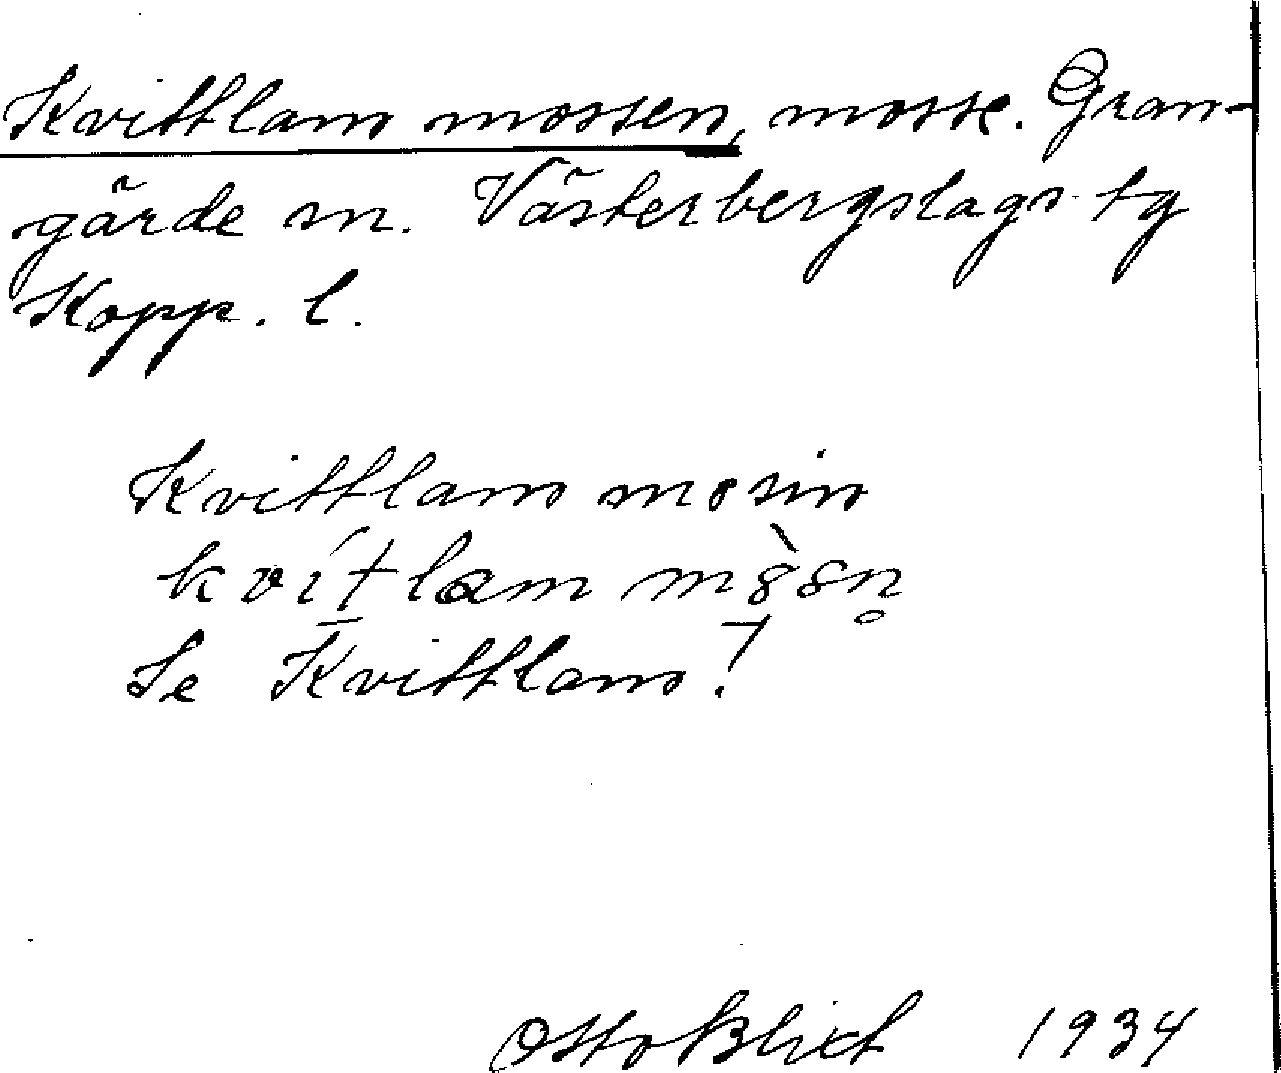 Kvittlam mossen, mosse. Gran-
gärde sn. Västerbergslags tg
Kopp. l.
Kvittlam mosin
kvít lam
Se Kvittlam!
Otto Blixt 1934